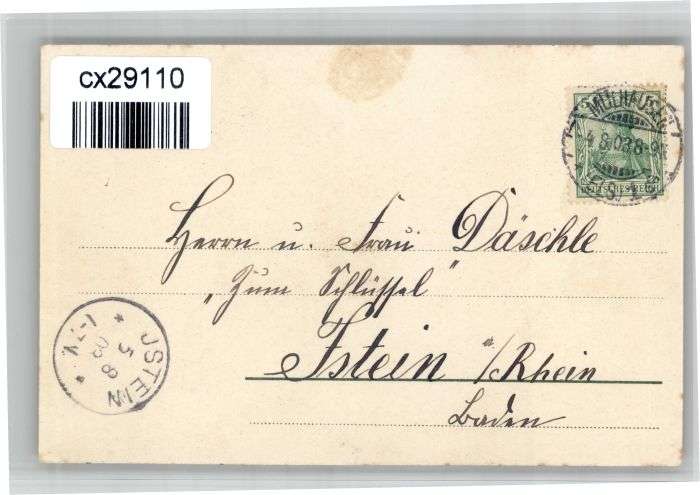 cx29110
MÜLHAUSEN
4.8.03.8-9
(ELS) 1
DEUTSCHES REICH
Herrn u. Frau Däschle
„Zum Schlüssel"
Istein a/Rhein
Baden
JSTEIN
5 8
03
1-7V